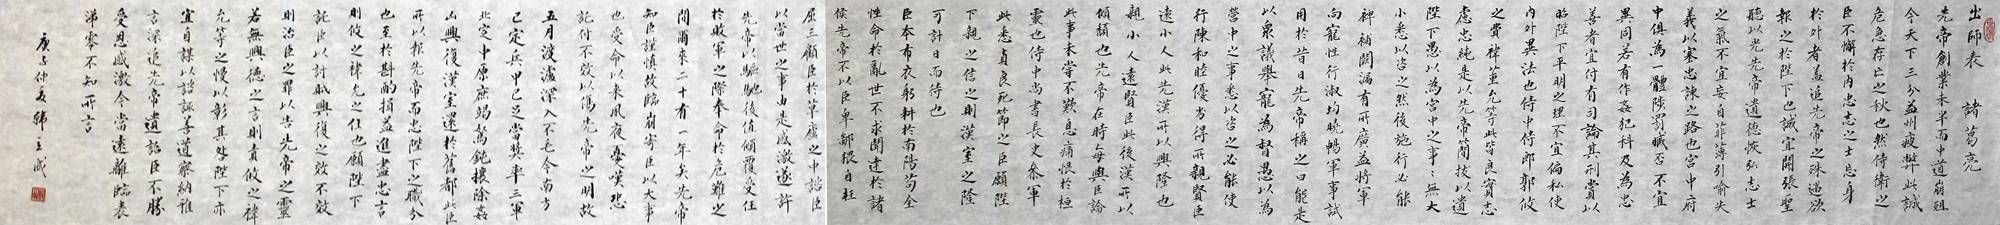 出師表 諸葛亮
先帝創業未半而中道崩殂
今天下三分益州疲弊此誠
危急存亡之秋也然侍衛之
臣不懈於內忠志之士忘身
於外者蓋追先帝之殊遇欲
報之於陛下也誠宜開張聖
聽以光先帝遺德恢弘志士
之氣不宜妄自菲薄引喻失
義以塞忠諫之路也宮中府
中俱為一體陟罰臧否不宜
異同若有作姦犯科及為忠
善者宜付有司論其刑賞以
昭陛下平明之理不宜偏私使
內外異法也侍中侍郎郭攸
之費禕董允等此皆良實志
慮忠純是以先帝簡拔以遺
陛下愚以為宮中之事〻無大
小悉以咨之然後施行必能
裨補闕漏有所廣益將軍
向寵性行淑均曉暢軍事試
用於昔日先帝稱之曰能是
以眾議舉寵為督愚以為
營中之事悉以咨之必能使
行陳和睦優劣得所親賢臣
遠小人此先漢所以興隆也
親小人遠賢臣此後漢所以
傾頹也先帝在時每與臣論
此事未嘗不歎息痛恨於桓
靈也侍中尚書長史參軍
此悉貞良死節之臣願陛
下親之信之則漢室之隆
可計日而待也
臣本布衣躬耕於南陽苟全
性命於亂世不求聞達於諸
侯先帝不以臣卑鄙猥自枉
屈三顧臣於草廬之中諮臣
以當世之事由是感激遂許
先帝以驅馳後值傾覆受任
於敗軍之際奉命於危難之
間爾來二十有一年矣先帝
知臣謹慎故臨崩寄臣以大事
也受命以來夙夜憂嘆恐
託付不效以傷先帝之明故
五月渡瀘深入不毛今南方
已定兵甲已足當獎率三軍
北定中原庶竭駑鈍攘除姦
凶興復漢室還於舊都此臣
所以報先帝而忠陛下之職分
也至於斟酌損益進盡忠言
則攸之禕允之任也願陛下
託臣以討賊興復之效不效
則治臣之罪以告先帝之靈
若無興德之言則責攸之禕
允等之慢以彰其咎陛下亦
宜自謀以諮諏善道察納雅
言深追先帝遺詔臣不勝
受恩感激今當遠離臨表
涕零不知所言